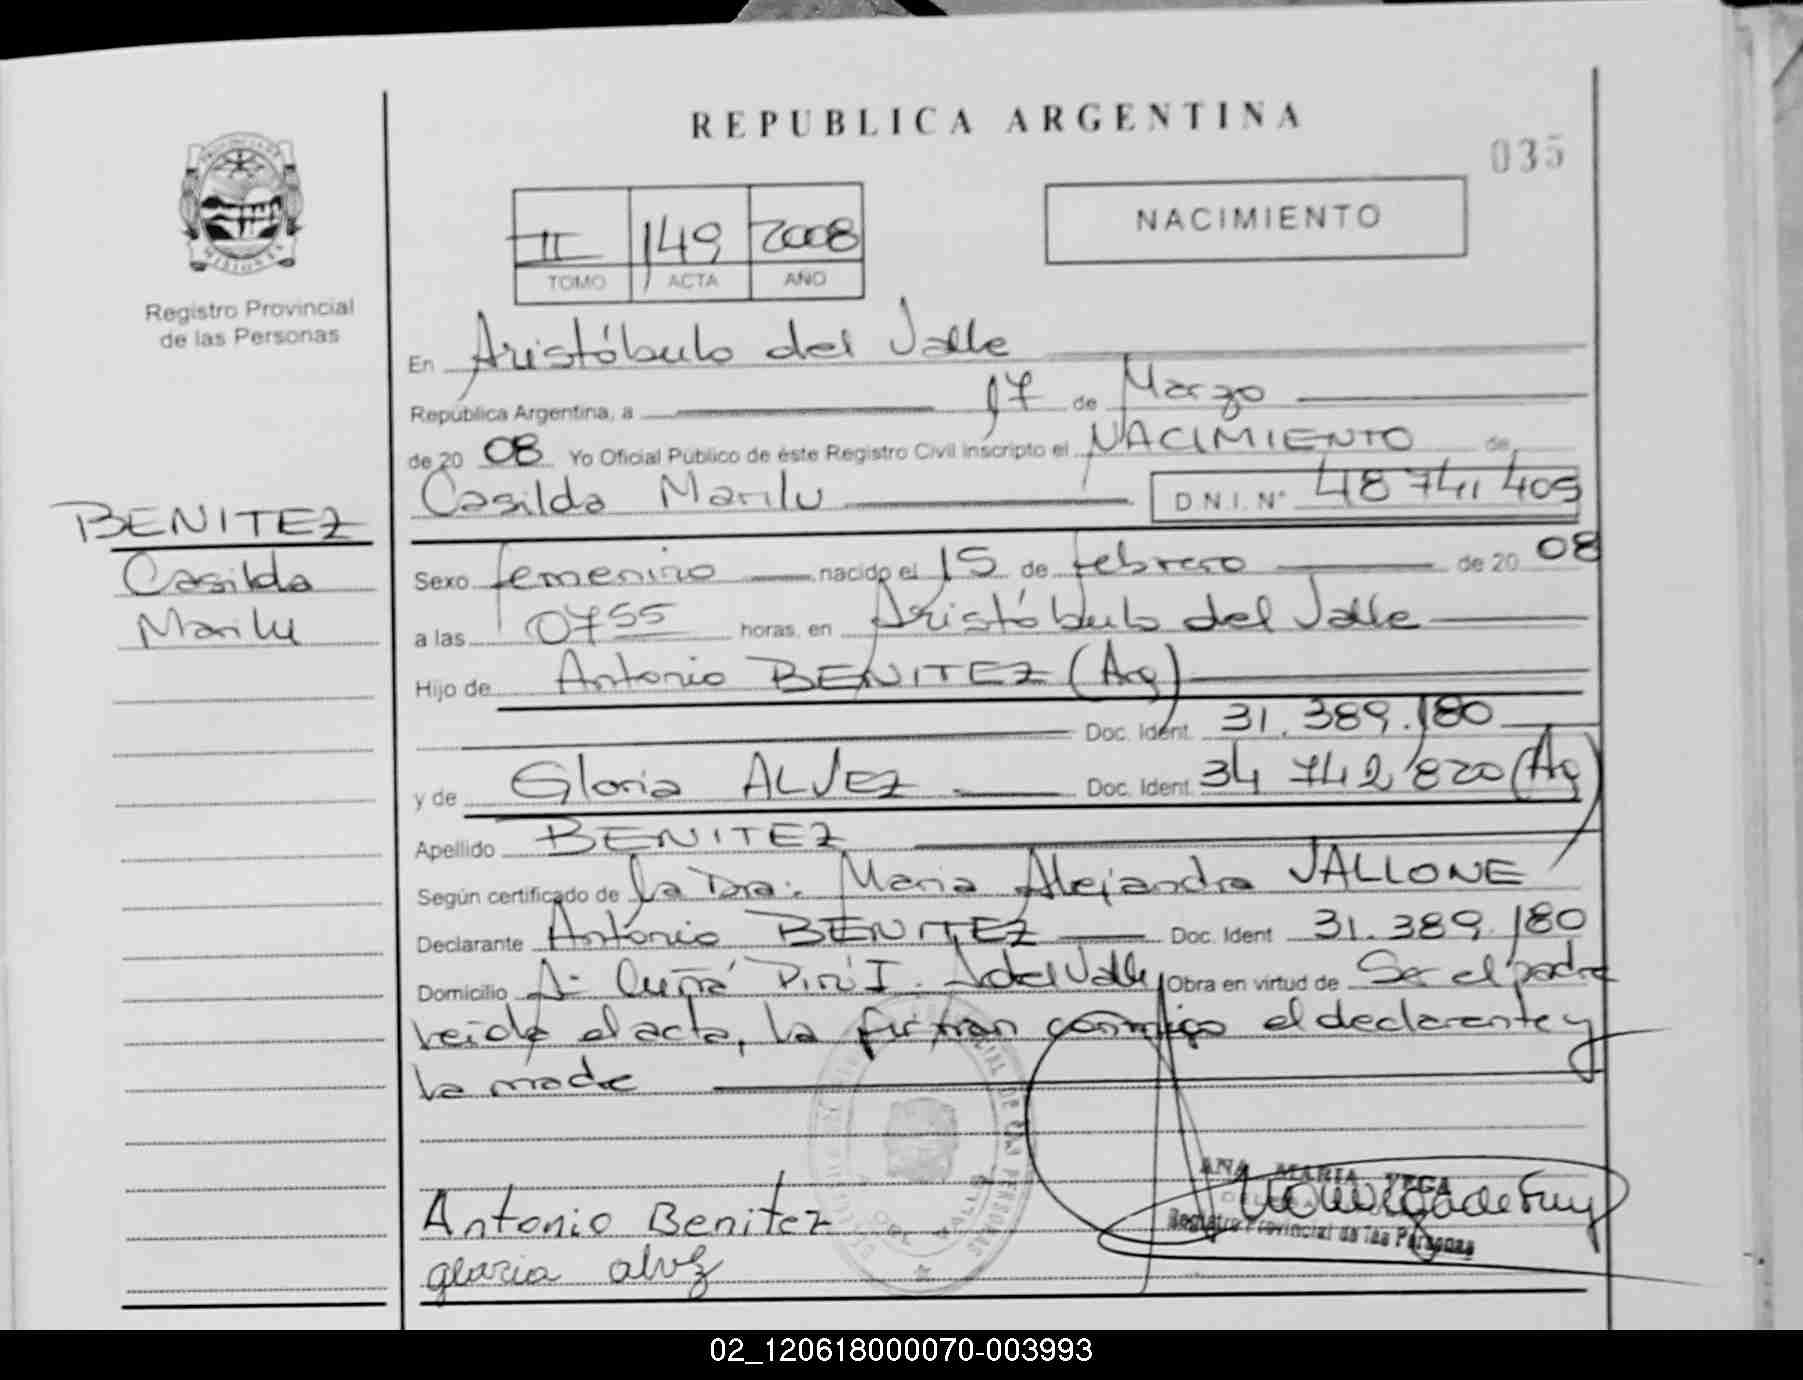 REPUBLICA ARGENTINA
035
II 149 2008
TOMO ACTA AÑO
NACIMIENTO
PROVINCIA DE MISIONES
Registro Provincial
de las Personas
BENITEZ
Casilda
Marilu
En Aristóbulo del Valle
República Argentina, a 17 de Marzo
de 20 08 Yo Oficial Público de éste Registro Civil Inscripto el NACIMIENTO de
Casilda Marilu D.N.I. N° 48 741 409
Sexo femenino nacido el 15 de febrero de 20 08
a las 0755 horas, en Aristóbulo del Valle
Hijo de Antonio BENITEZ (Ag)
Doc. Ident. 31.389.180
y de Gloria ALVEZ Doc. Ident. 34 742 820 (Ag)
Apellido BENITEZ
Según certificado de la Dra. Maria Alejandra VALLONE
Declarante Antonio BENITEZ Doc. Ident 31.389.180
Domicilio A- Cuñá Pirú I. A del Valle Obra en virtud de Ser el padre
leída el acta, la firman conmigo el declarante y
la madre
ANA MARIA VEGA
Registro Provincial de las Personas
Antonio Benitez
gloria alvez
02_120618000070-003993